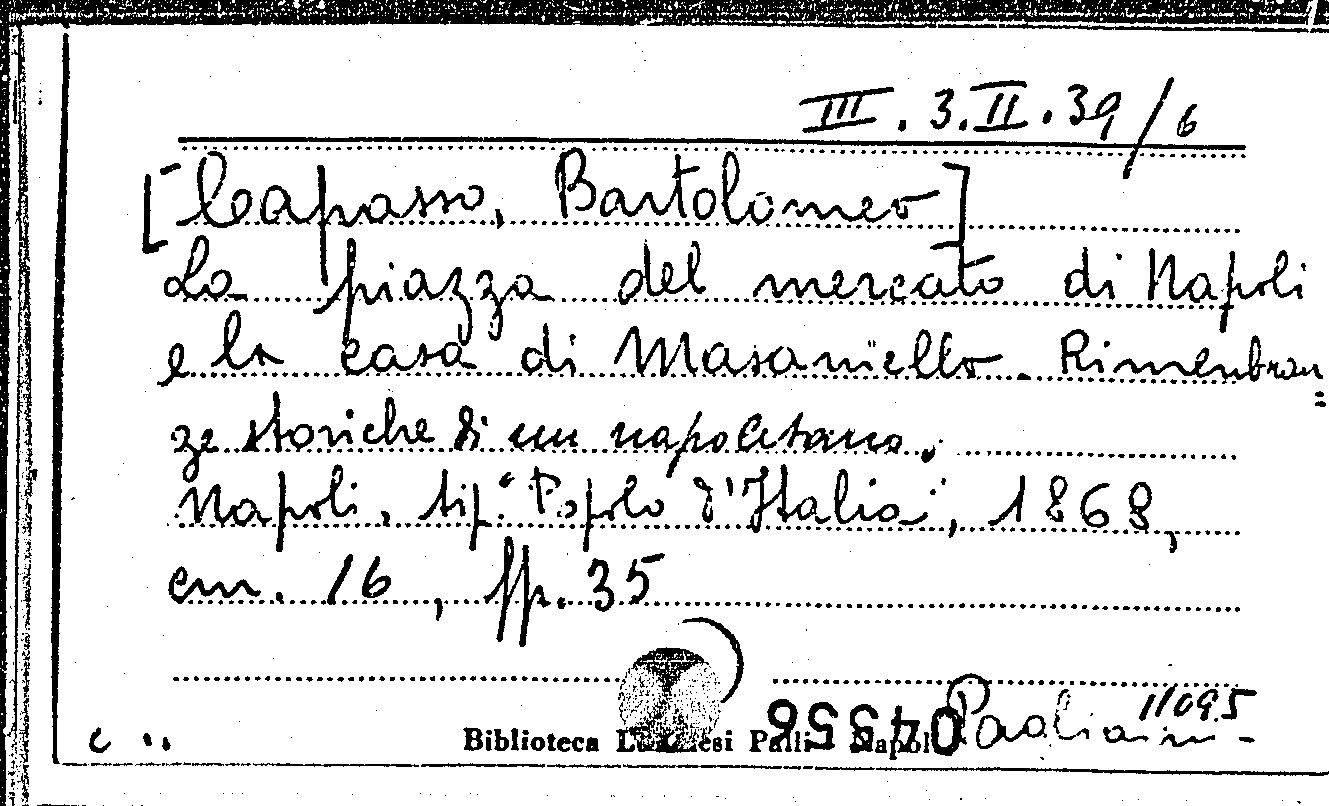 III. 3. II. 39/6
[Capasso, Bartolomeo]
La piazza del mercato di Napoli
e la casa di Masaniello. Rimenbran=
ze storiche di un napoletano.
Napoli, tip. "Popolo d'Italia", 1868,
cm. 16, pp. 35
11095
Biblioteca Lucchesi Palli - Napoli